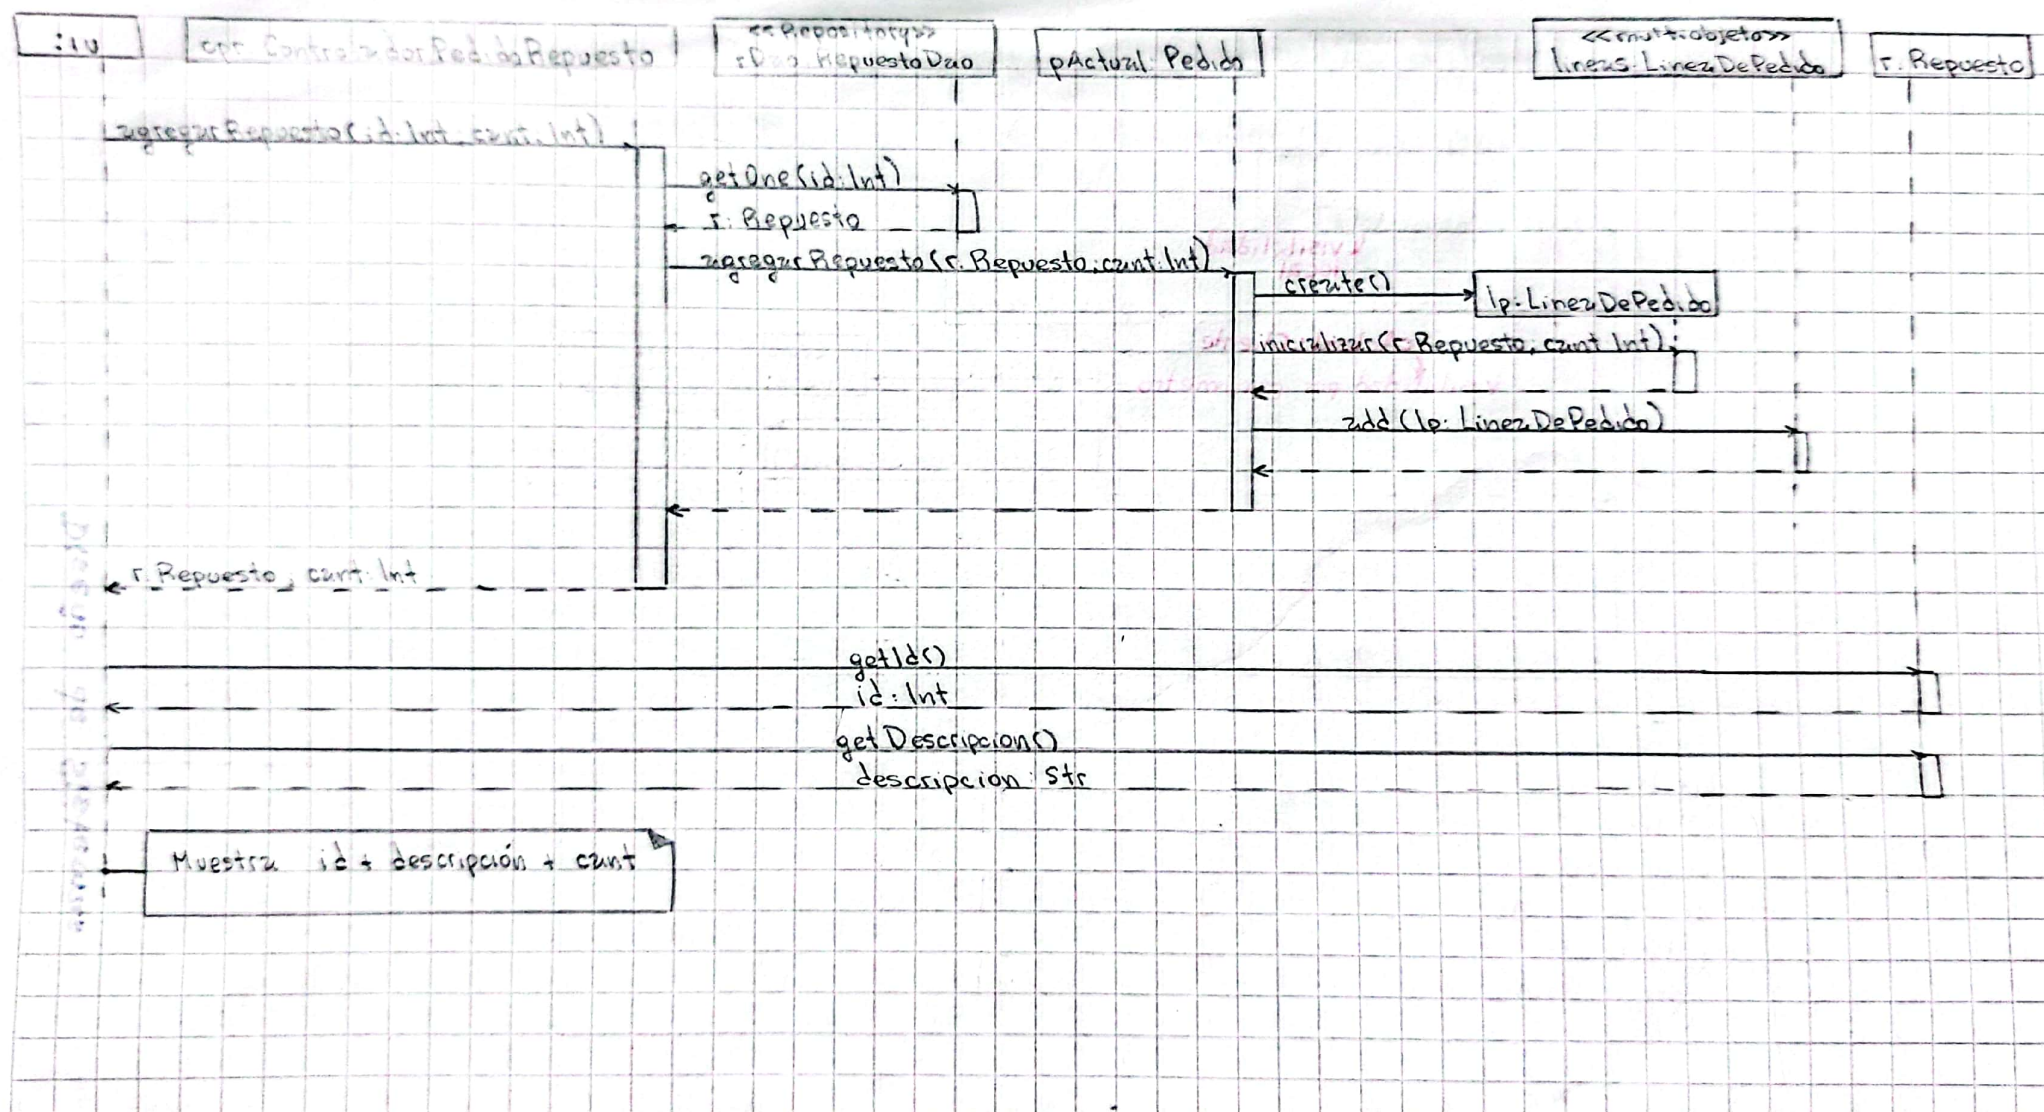 :iu
cpr: ControladorPedidoRepuesto
<<Repository>>
rDao: RepuestoDao
pActual: Pedido
<<multiobjeto>>
lineas: LineaDePedido
r: Repuesto
agregarRepuesto(id: Int, cant: Int)
getOne(id: Int)
r: Repuesto
agregarRepuesto(r: Repuesto, cant: Int)
create()
lp: LineaDePedido
inicializar(r: Repuesto, cant: Int)
add(lp: LineaDePedido)
r: Repuesto, cant: Int
getId()
id: Int
getDescripcion()
descripcion: str
Muestra id + descripción + cant